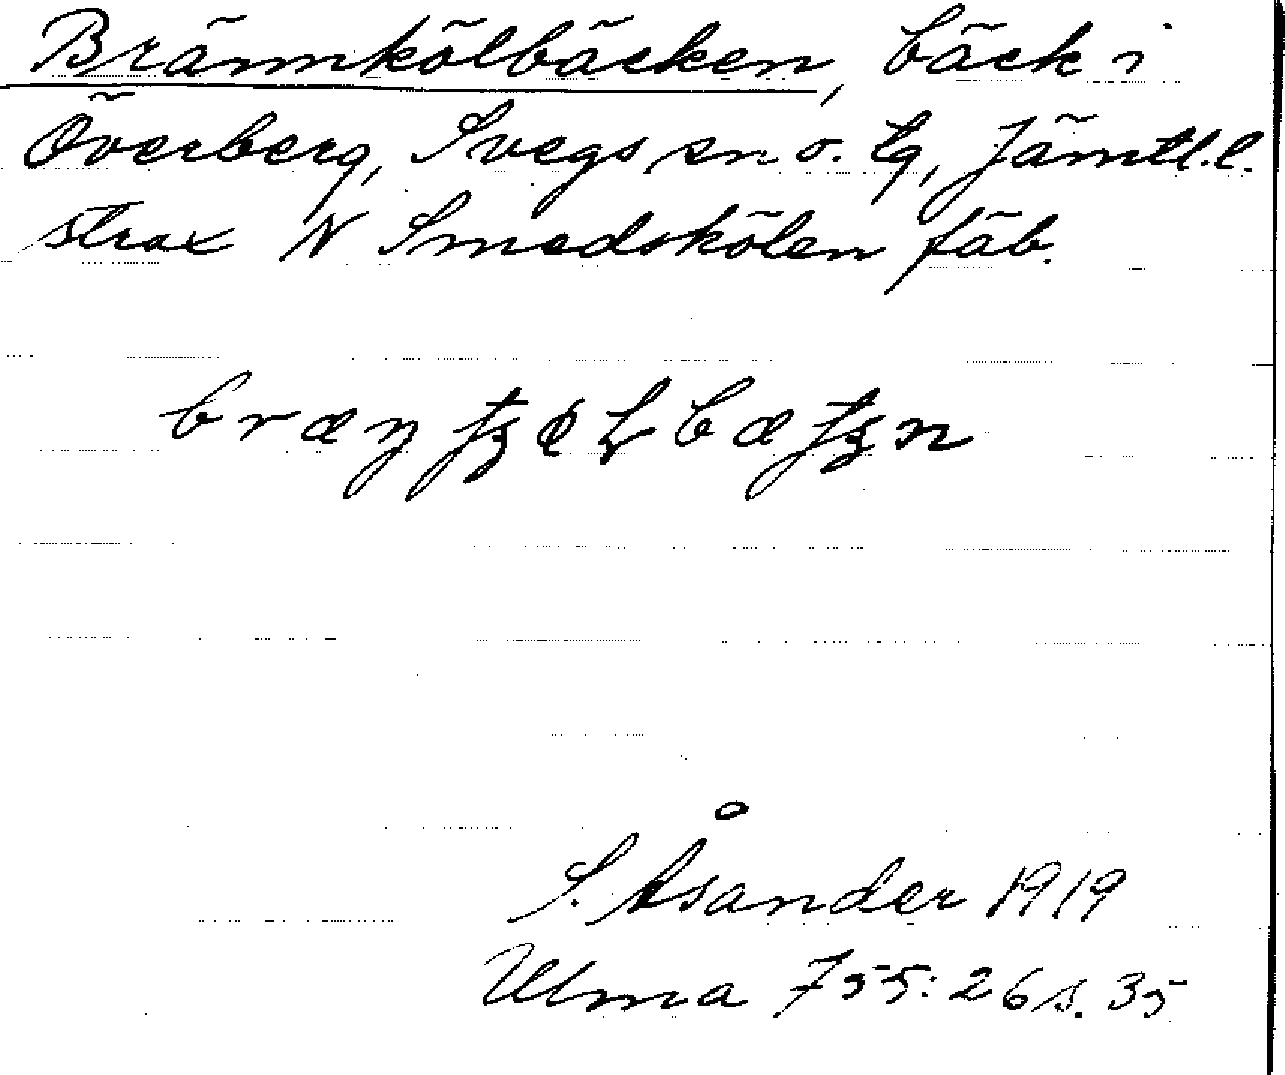 Brännkölbäcken, bäck i
Överberg, Svegs sn o. lg, Jämtl. l.
strax N Smedskölen fäb.
S. Åsander 1919
Ulma 755:26 s. 35